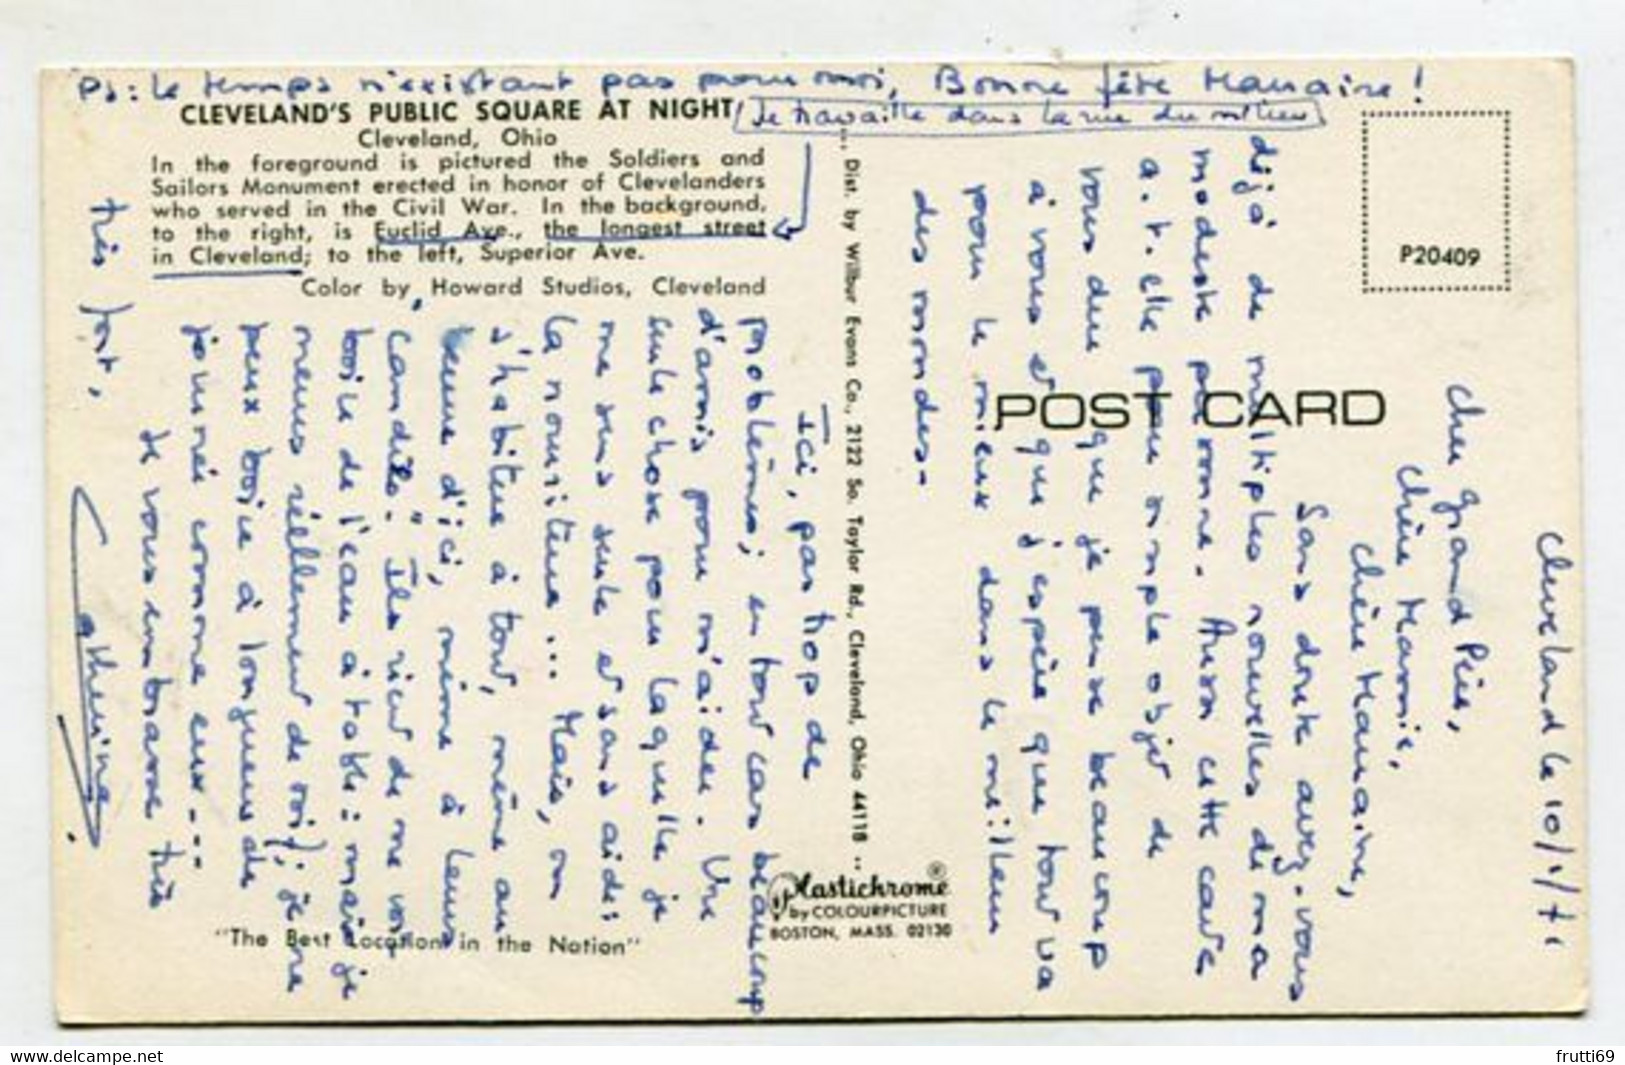 Ps: Le temps n'existant pas pour moi, Bonne fête Marraine!
CLEVELAND'S PUBLIC SQUARE AT NIGHT
Je travaille dans la rue du milieu
Cleveland, Ohio
In the foreground is pictured the Soldiers and
Sailors Monument erected in honor of Clevelanders
who served in the Civil War. In the background,
to the right, is Euclid Ave., the longest street
in Cleveland; to the left, Superior Ave.
Color by Howard Studios, Cleveland
"The Best Location in the Nation"
Dist. by Wilbur Evans Co., 2122 So. Taylor Rd., Cleveland, Ohio 44118
Plastichrome®
by COLOURPICTURE
BOSTON, MASS. 02130
POST CARD
P20409
Cleveland le 10/1/71
Cher Grand Père,
Chère Mamie,
Chère Marraine,
Sans doute avez-vous
déjà de multiples nouvelles de ma
modeste personne. Aussi cette carte
a-t-elle pour simple objet de
vous dire que je pense beaucoup
à vous et que j'espère que tout va
pour le mieux dans le meilleur
des mondes-
Ici, pas trop de
problèmes; en tout cas beaucoup
d'amis pour m'aider. Une
seule chose pour laquelle je
me sens seule et sans aide:
la nourriture... Mais, on
s'habitue à tout, même au
beurre d'ici, même à leurs
"candies". Ils rient de me voir
boire de l'eau à table: mais je
meurs réellement de soif; je ne
peux boire à longueur de
journée comme eux---
Je vous embrasse très
très fort,
Catherine
frutti69
www.delcampe.net